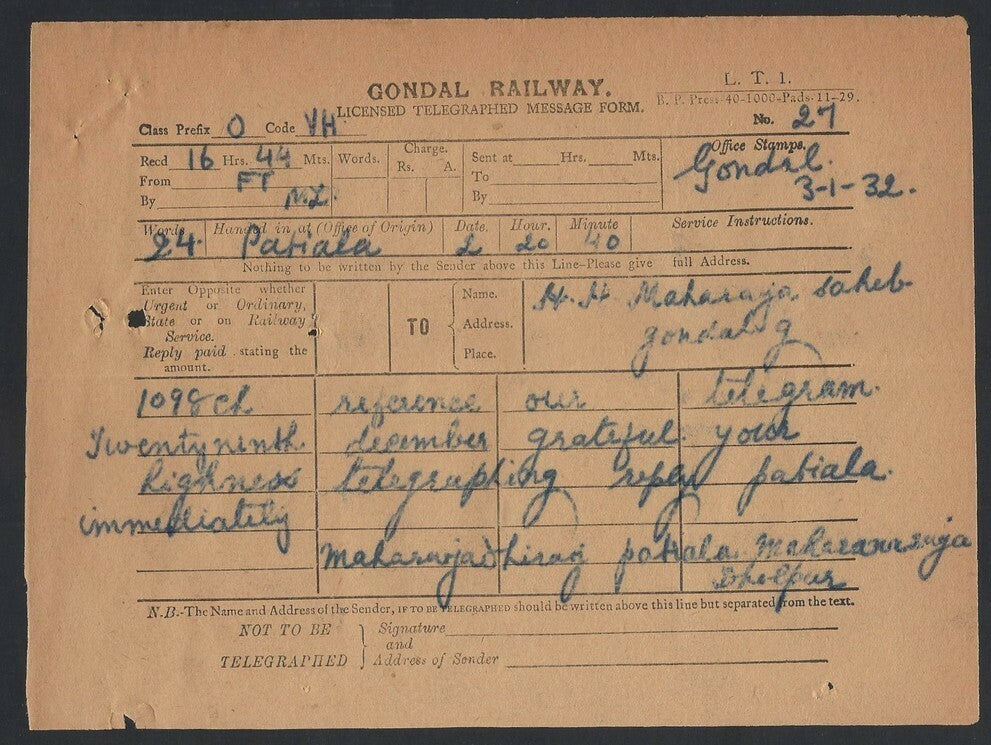 GONDAL RAILWAY.
LICENSED TELEGRAPHED MESSAGE FORM.
L. T. 1.
B. P. Press 40-1000-Pads-11-29.
Class Prefix O Code VH
No. 27
Recd 16 Hrs. 44 Mts.
From FT
By M.L.
Words.
Charge.
Rs. A.
Sent at Hrs. Mts.
To
By
Office Stamps.
Gondal.
3-1-32.
Words Handed in at (Office of Origin) Date. Hour. Minute Service Instructions.
24. Patiala 2 20 40
Nothing to be written by the Sender above this Line-Please give full Address.
Enter Opposite whether
Urgent or Ordinary,
State or on Railway
Service.
Reply paid stating the
amount.
TO
Name.
Address.
Place.
H. H Maharaja saheb
gondal g
1098 ch reference our telegram.
Twentyninth december grateful your
highness telegraphing reply patiala.
immediately
Maharajadhiraj patiala Maharanaraja
Dholpur
N.B.-The Name and Address of the Sender, IF TO BE TELEGRAPHED should be written above this line but separated from the text.
NOT TO BE
TELEGRAPHED
Signature
and
Address of Sender